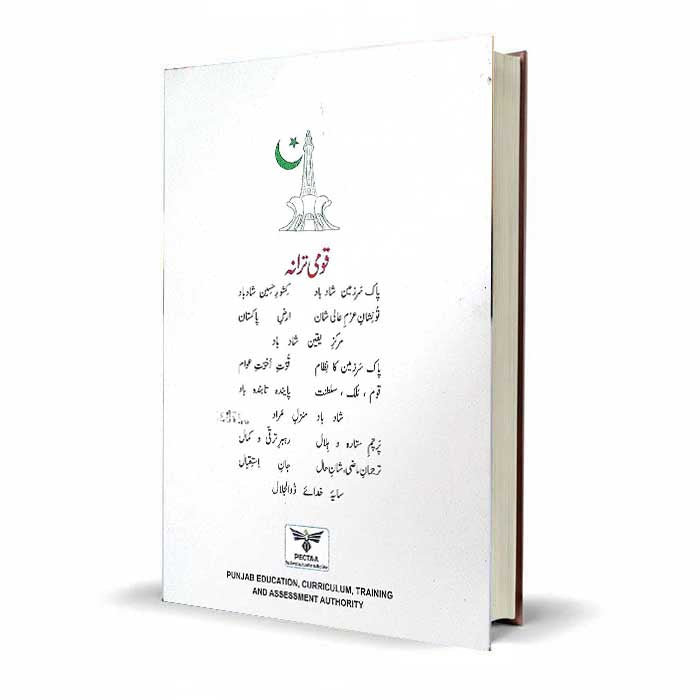 قومی ترانہ
پاک سَرزمین شاد باد کِشورِ حسین شاد باد
تُو نِشانِ عزمِ عالی شان ارضِ پاکستان
مرکزِ یقین شاد باد
پاک سَرزمین کا نظام قُوّتِ اُخوّتِ عوام
قوم ، مُلک ، سلطنت پایندہ تابندہ باد
شاد باد منزلِ مُراد
پرچمِ ستارہ و ہلال رہبرِ ترقّی و کمال
ترجمانِ ماضی، شانِ حال جانِ اِستقبال
سایۂ خدائے ذوالجلال
PECTAA
PUNJAB EDUCATION, CURRICULUM, TRAINING
AND ASSESSMENT AUTHORITY